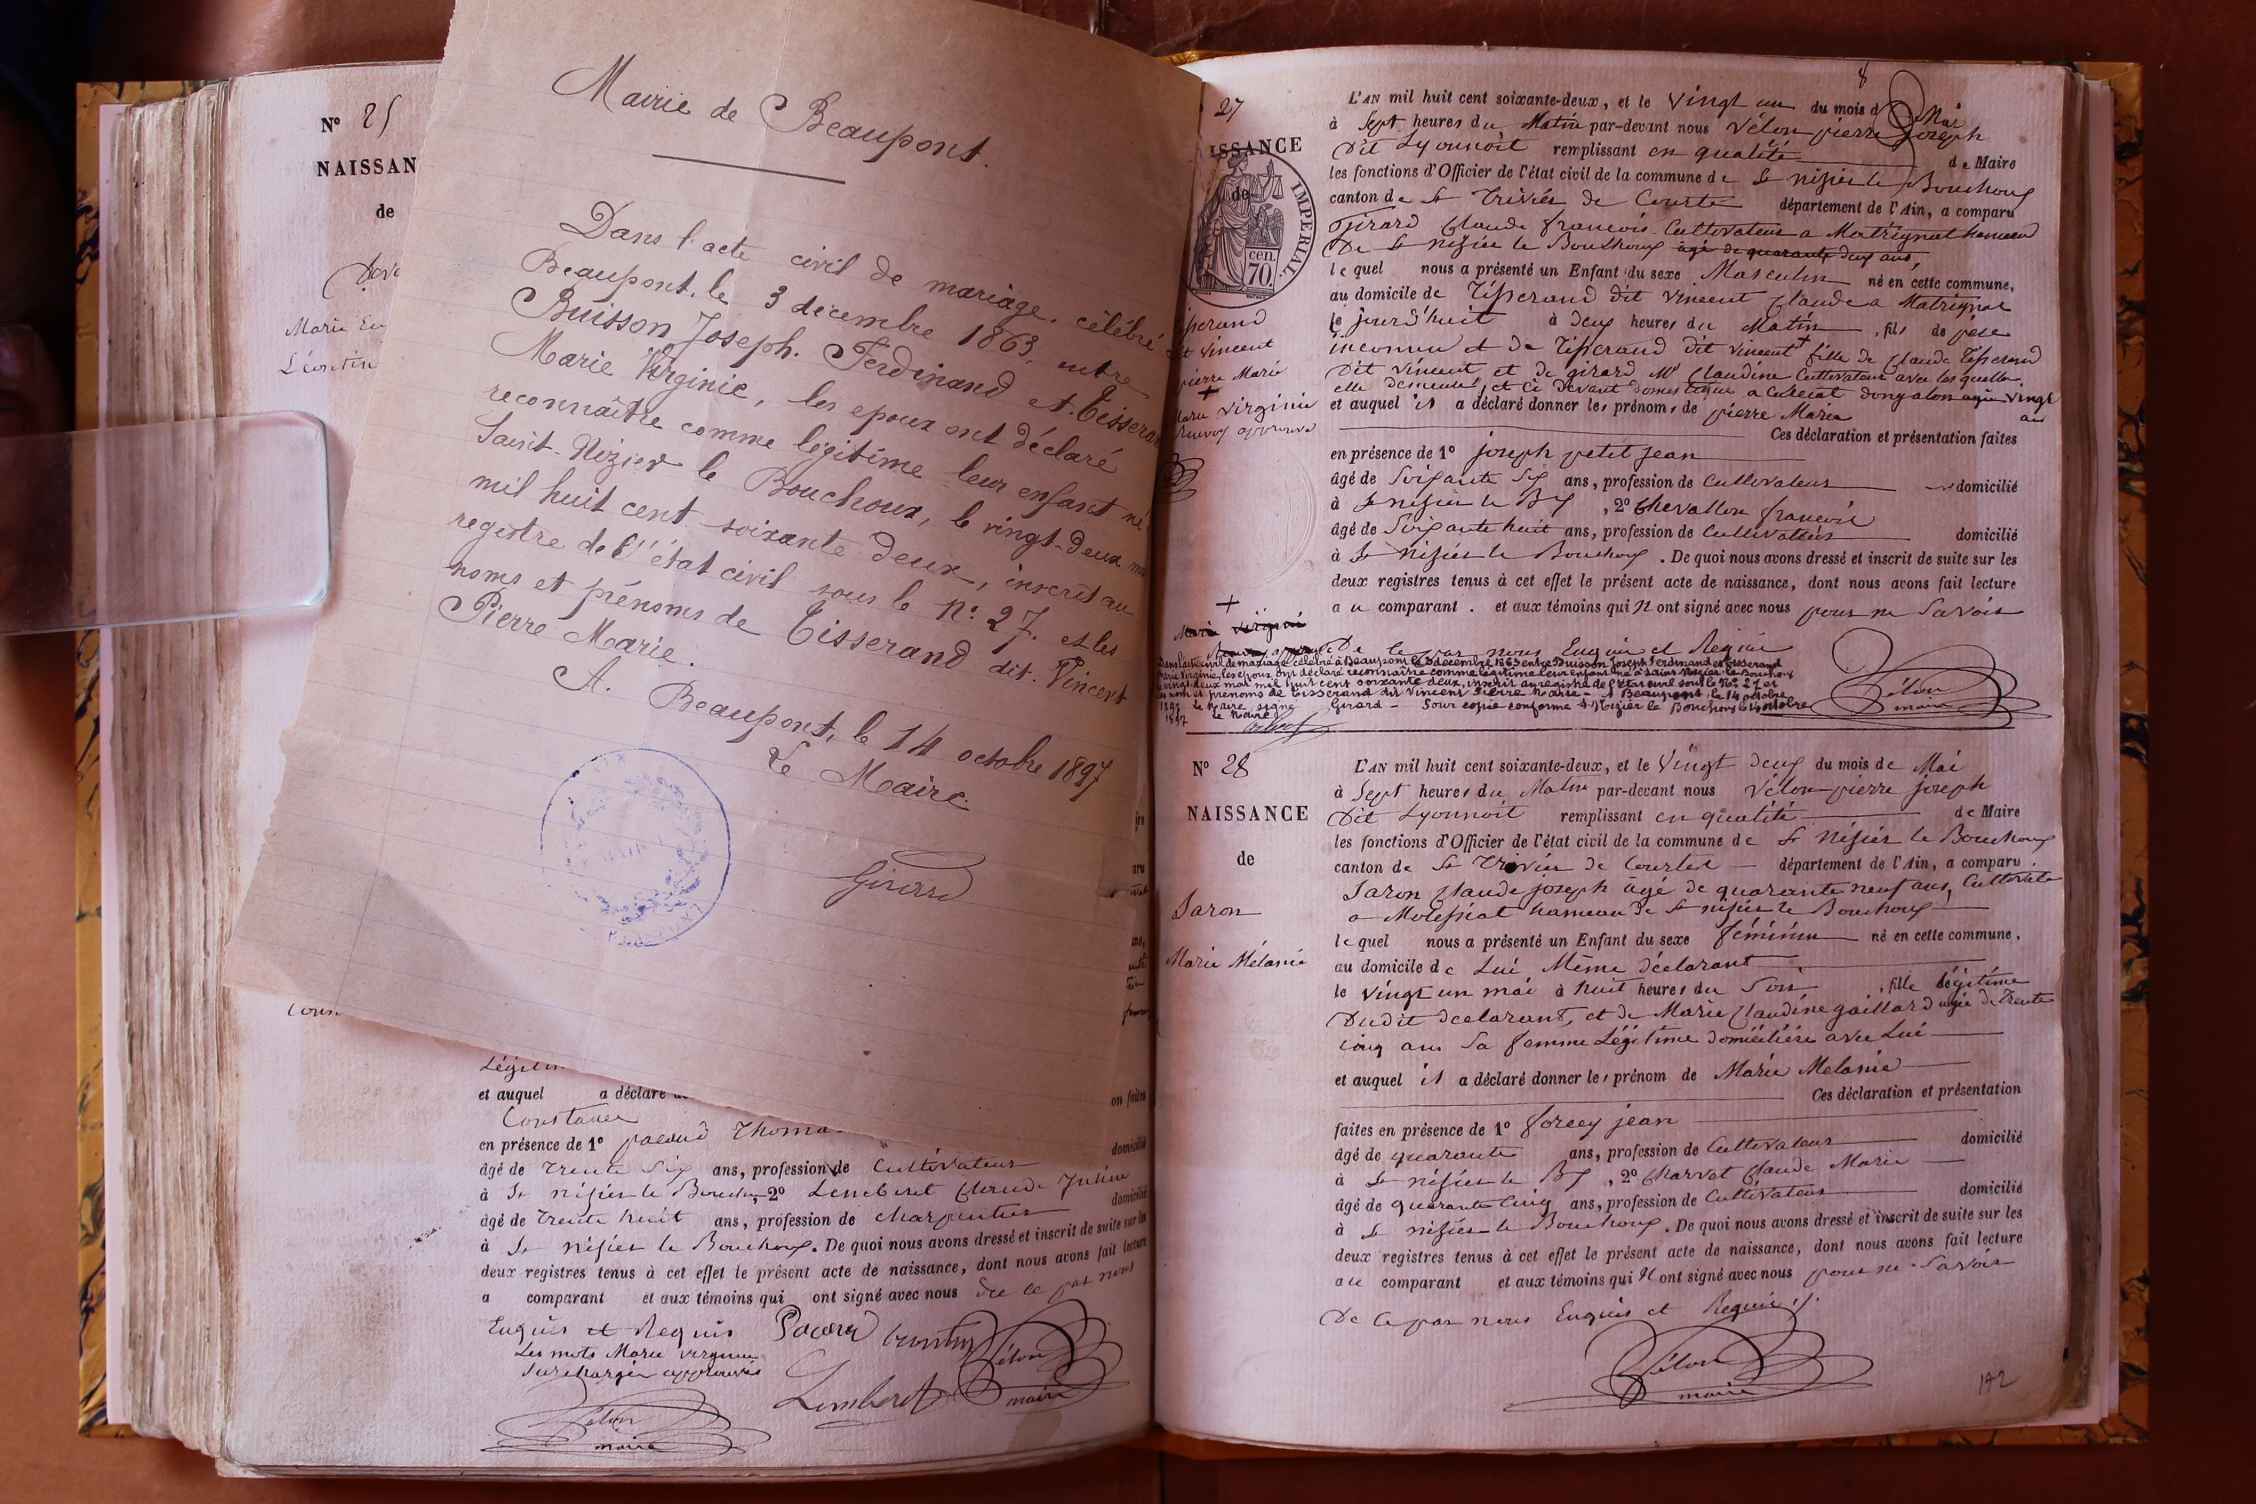 Nº 25
NAISSAN
de
Marie Eu
Léontin
Mairie de Beaupont.
Dans l'acte civil de mariage, célébré à
Beaupont, le 3 décembre 1863, entre
Buisson Joseph Ferdinand et Tisserand
Marie Virginie, les epoux ont déclaré
reconnaître comme légitime leur enfant né à
Saint-Nizier le Bouchoux, le vingt-deux mai
mil huit cent soixante deux, inscrit au
registre de l'état civil sous le Nº 27. et les
noms et prénoms de Tisserand dit Vincent
Pierre Marie.
A Beaupont, le 14 octobre 1897
Le Maire.
Girard
Légitim
et auquel a déclaré
on faites
Constance
en présence de 1º pacoud Thoma
domicilié
âgé de trente six ans, profession de Cultivateur
à St nisier le Bouchoux, 2º Lemberet Claude
domicilié
âgé de trente huit ans, profession de charpentier
à St nisier le Bouchoux. De quoi nous avons dressé et inscrit de suite sur les
deux registres tenus à cet effet le présent acte de naissance, dont nous avons fait lecture
a comparant et aux témoins qui ont signé avec nous de ce par nous
Enquis et Requis Pacoud
Les mots Marie virginie
surcharger approuvés
Lemberet
Vélon
maire
Vélon
maire
27
ISSANCE
de
IMPERIAL.
70 cen.
isserand
it Vincent
pierre Marie
+
Marie Virginie
Renvoy approuvé
8
L'AN mil huit cent soixante-deux, et le vingt un du mois de Mai
à Sept heures du Matin par-devant nous Vélon pierre Joseph
Dit Lyonnoit remplissant en qualité de Maire
les fonctions d'Officier de l'état civil de la commune de St nisier le Bouchoux
canton de St Trivier de Courte département de l'Ain, a comparu
Girard Claude françois Cultivateur a Matrignat hameau
De St nisier le Bouchoux âgé de quarante deux ans,
lequel nous a présenté un Enfant du sexe Masculin né en cette commune,
au domicile de Tisserand dit vincent Claude a Matrignat
le jourd'huit à deux heures du Matin, fils de père
inconnu et de Tisserand dit vincent + fille de Claude Tisserand
Dit vincent et de girard Mie Claudine Cultivateur avec lesquelles
elle demeure, et ci devant domestique a Curciat dongalon agée vingt
ans
et auquel il a déclaré donner les prénoms de pierre Marie
Ces déclaration et présentation faites
en présence de 1º joseph petit jean
âgé de Soixante Six ans, profession de Cultivateur domicilié
à St nisier le Bx, 2º Chevallon françois
âgé de Soixante huit ans, profession de Cultivateur domicilié
à St Nisier le Bouchoux. De quoi nous avons dressé et inscrit de suite sur les
deux registres tenus à cet effet le présent acte de naissance, dont nous avons fait lecture
au comparant. et aux témoins qui N ont signé avec nous pour ne Savoir
+
Marie Virginie
De le par nous Enquis et Requis
Dans l'acte civil de mariage célébré à Beaupont le 3 décembre 1863 entre Buisson Joseph Ferdinand et Tisserand
Marie Virginie, les époux ont déclaré reconnaître comme légitime leur enfant né à Saint-Nizier le Bouchoux
le vingt-deux mai mil huit cent soixante deux, inscrit au registre de l'état civil sous le Nº 27 et
les nom et prénoms de Tisserand dit Vincent Pierre Marie - A Beaupont, le 14 octobre
1897 le Maire signé Girard - Pour copie conforme St Nizier le Bouchoux le octobre
1897 Le Maire
Vélon
maire
Nº 28
NAISSANCE
de
Jaron
Marie Mélanie
L'AN mil huit cent soixante-deux, et le Vingt deux du mois de Mai
à Sept heures du Matin par-devant nous Vélon pierre joseph
Dit Lyonnoit remplissant en qualité de Maire
les fonctions d'Officier de l'état civil de la commune de St Nisier le Bouchoux
canton de St Trivier de Courtes département de l'Ain, a comparu
Jaron Claude joseph âgé de quarante neuf ans, Cultivate
a Molessiat hameau de St nisier le Bouchoux
lequel nous a présenté un Enfant du sexe féminin né en cette commune,
au domicile de Lui Même déclarant
le Vingt un mai à huit heures du Soir, fille légitime
Dudit déclarant, et de Marie Claudine gaillard agée de trente
cinq ans Sa femme Légitime domiciliée avec Lui
et auquel il a déclaré donner les prénom de Marie Melanie
Ces déclaration et présentation
faites en présence de 1º forey jean
âgé de quarante ans, profession de Cultivateur domicilié
à St nisier le Bx, 2º Charvet Claude Marie
âgé de quarante Cinq ans, profession de Cultivateur domicilié
à St nisier le Bouchoux. De quoi nous avons dressé et inscrit de suite sur les
deux registres tenus à cet effet le présent acte de naissance, dont nous avons fait lecture
au comparant et aux témoins qui N ont signé avec nous pour ne Savoir
De ce par nous Enquis et Requis
Vélon
maire
142